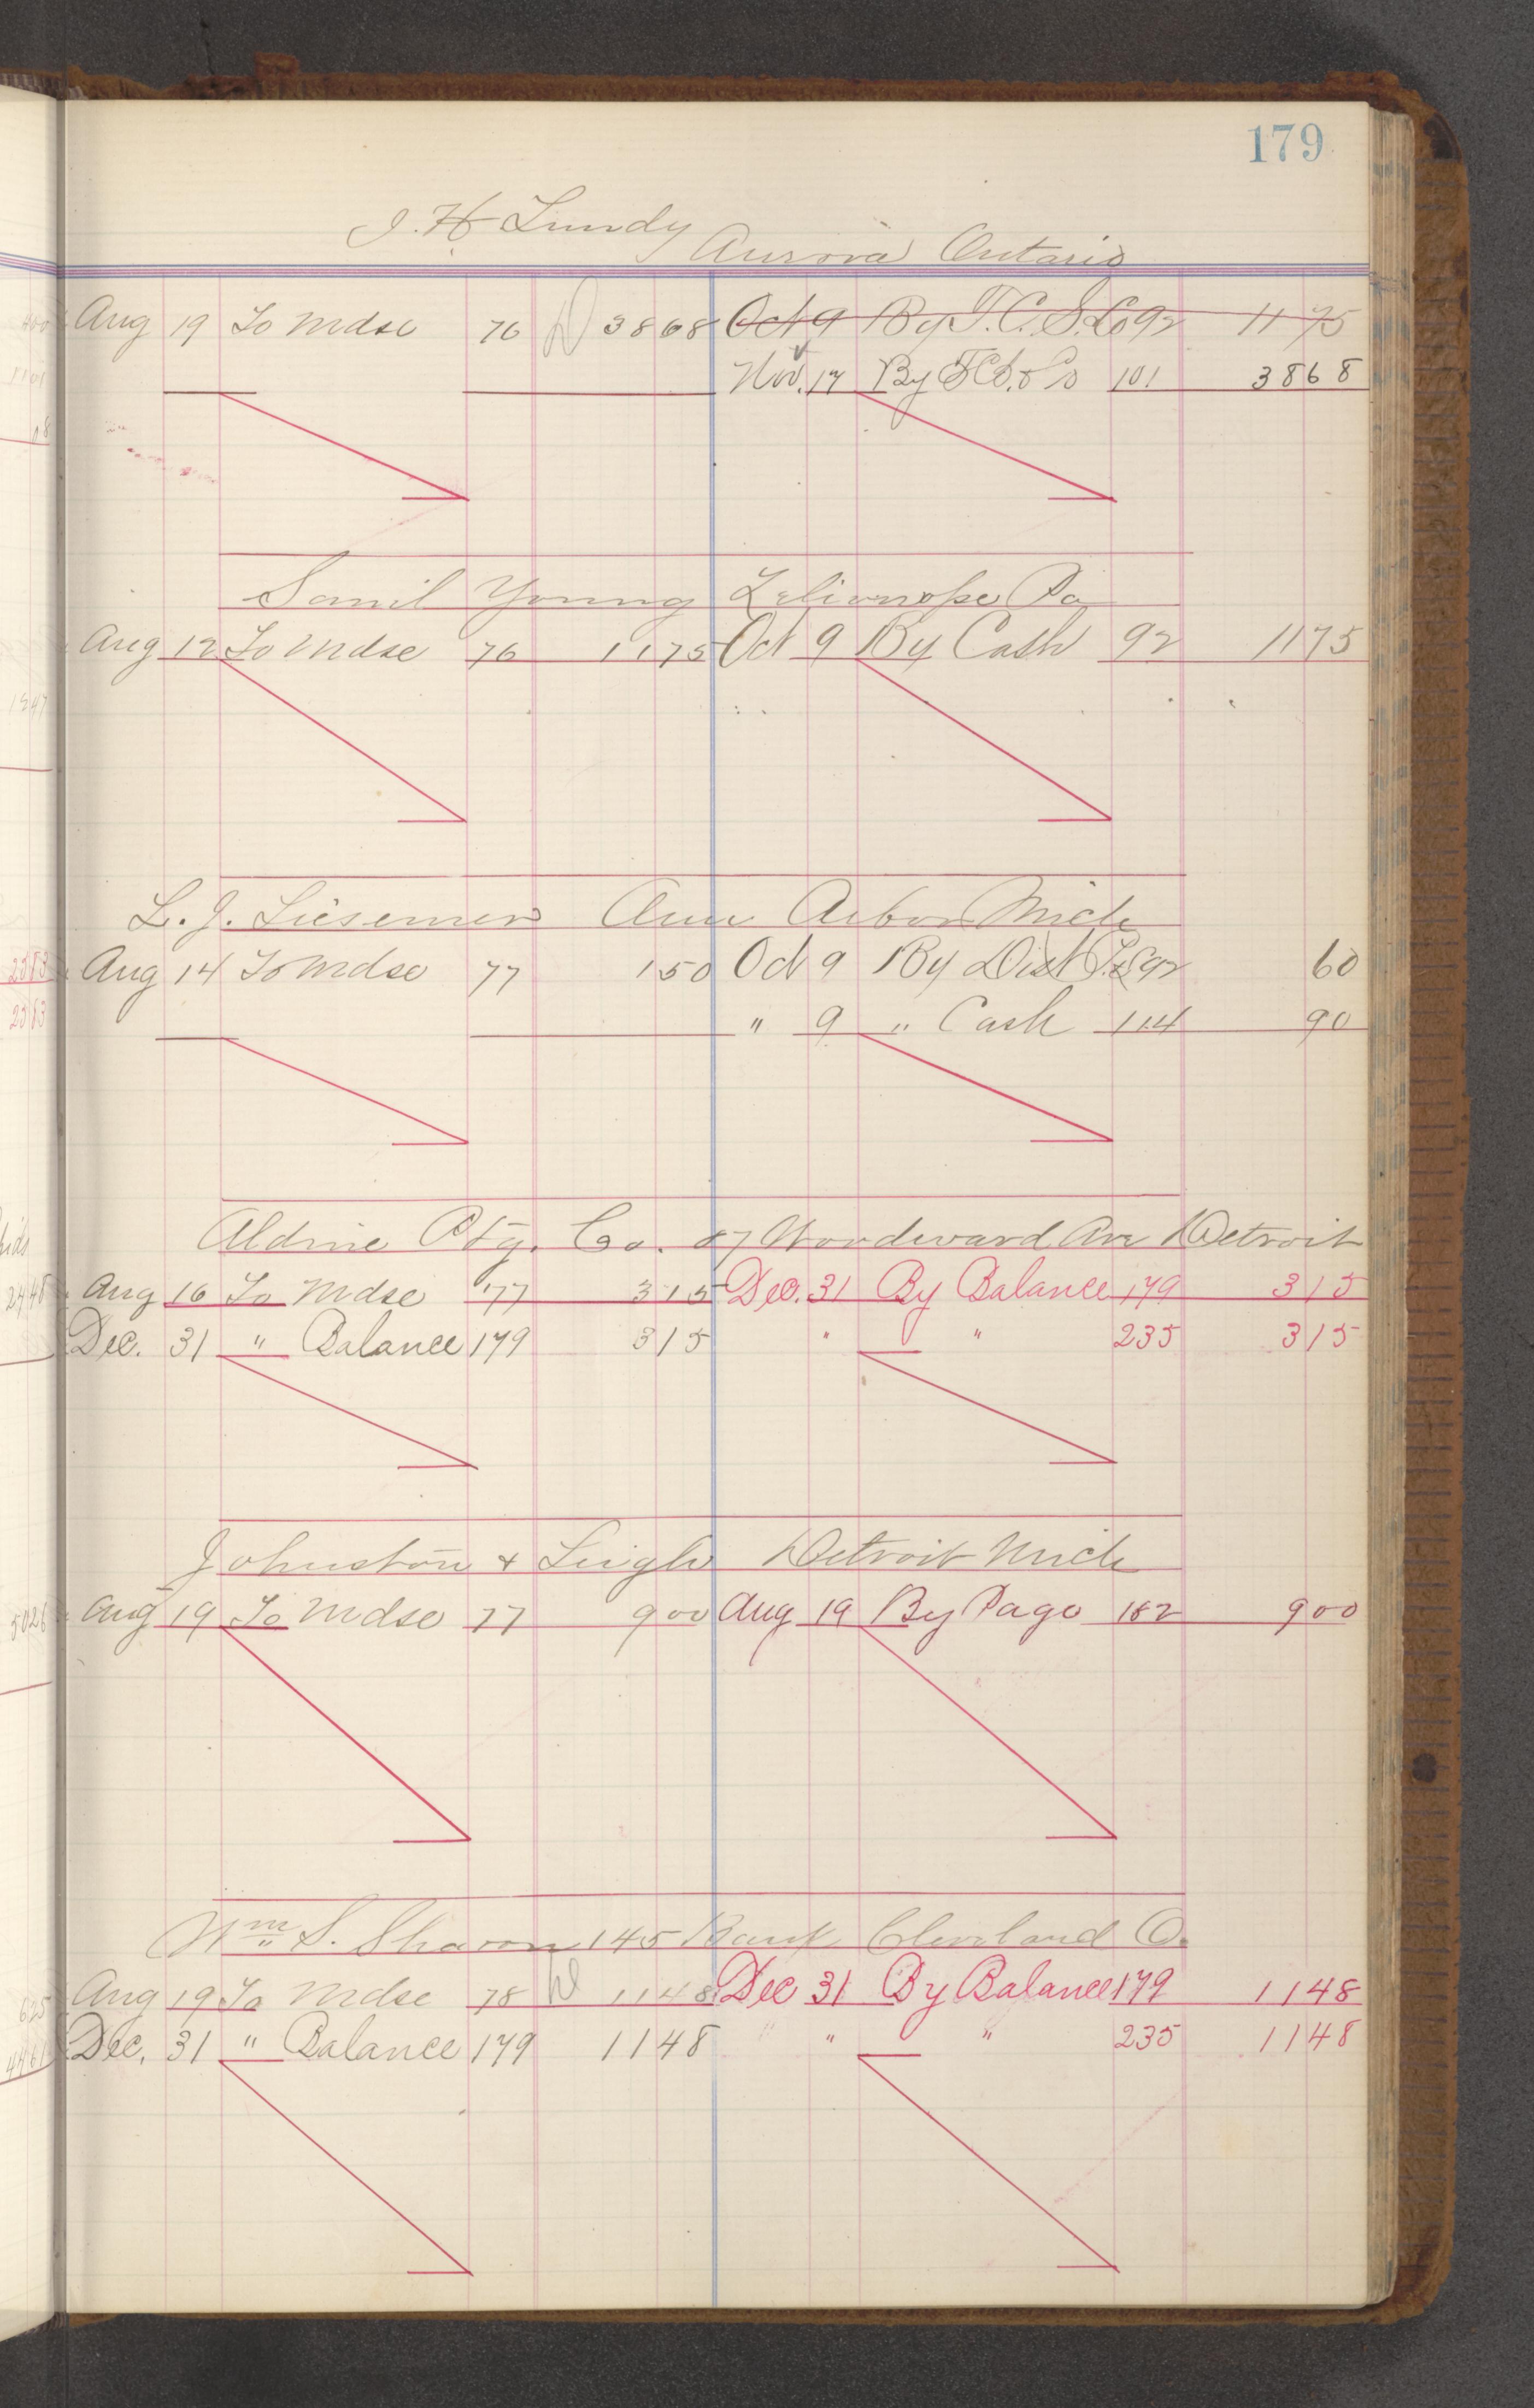 179
J. H Lundy Aurora Ontario
Aug 19 To Mdse 76 3868 Oct 9 By T. C. S. Co 92 1175
Nov. 17 By 101 3868
Saml Young Zelionople Pa
Aug 12 To Mdse 76 1175 Oct 9 By Cash 92 1175
L. J. Liesemer Ann Arbor Mich
Aug 14 To Mdse 77 150 Oct 9 By Dist 92 60
" 9 " Cash 114 90
Aldine Ptg. Co. 27 Woodward Ave Detroit
Aug 16 To Mdse 77 315 Dec. 31 By Balance 179 315
Dec. 31 " Balance 179 315 " " 235 315
Johnston & Leigh Detroit Mich
Aug 19 To Mdse 77 900 Aug 19 By Page 182 900
Wm S. Sharon 145 Bank Cleveland O.
Aug 19 To Mdse 78 1148 Dec 31 By Balance 179 1148
Dec. 31 " Balance 179 1148 " " " 235 1148